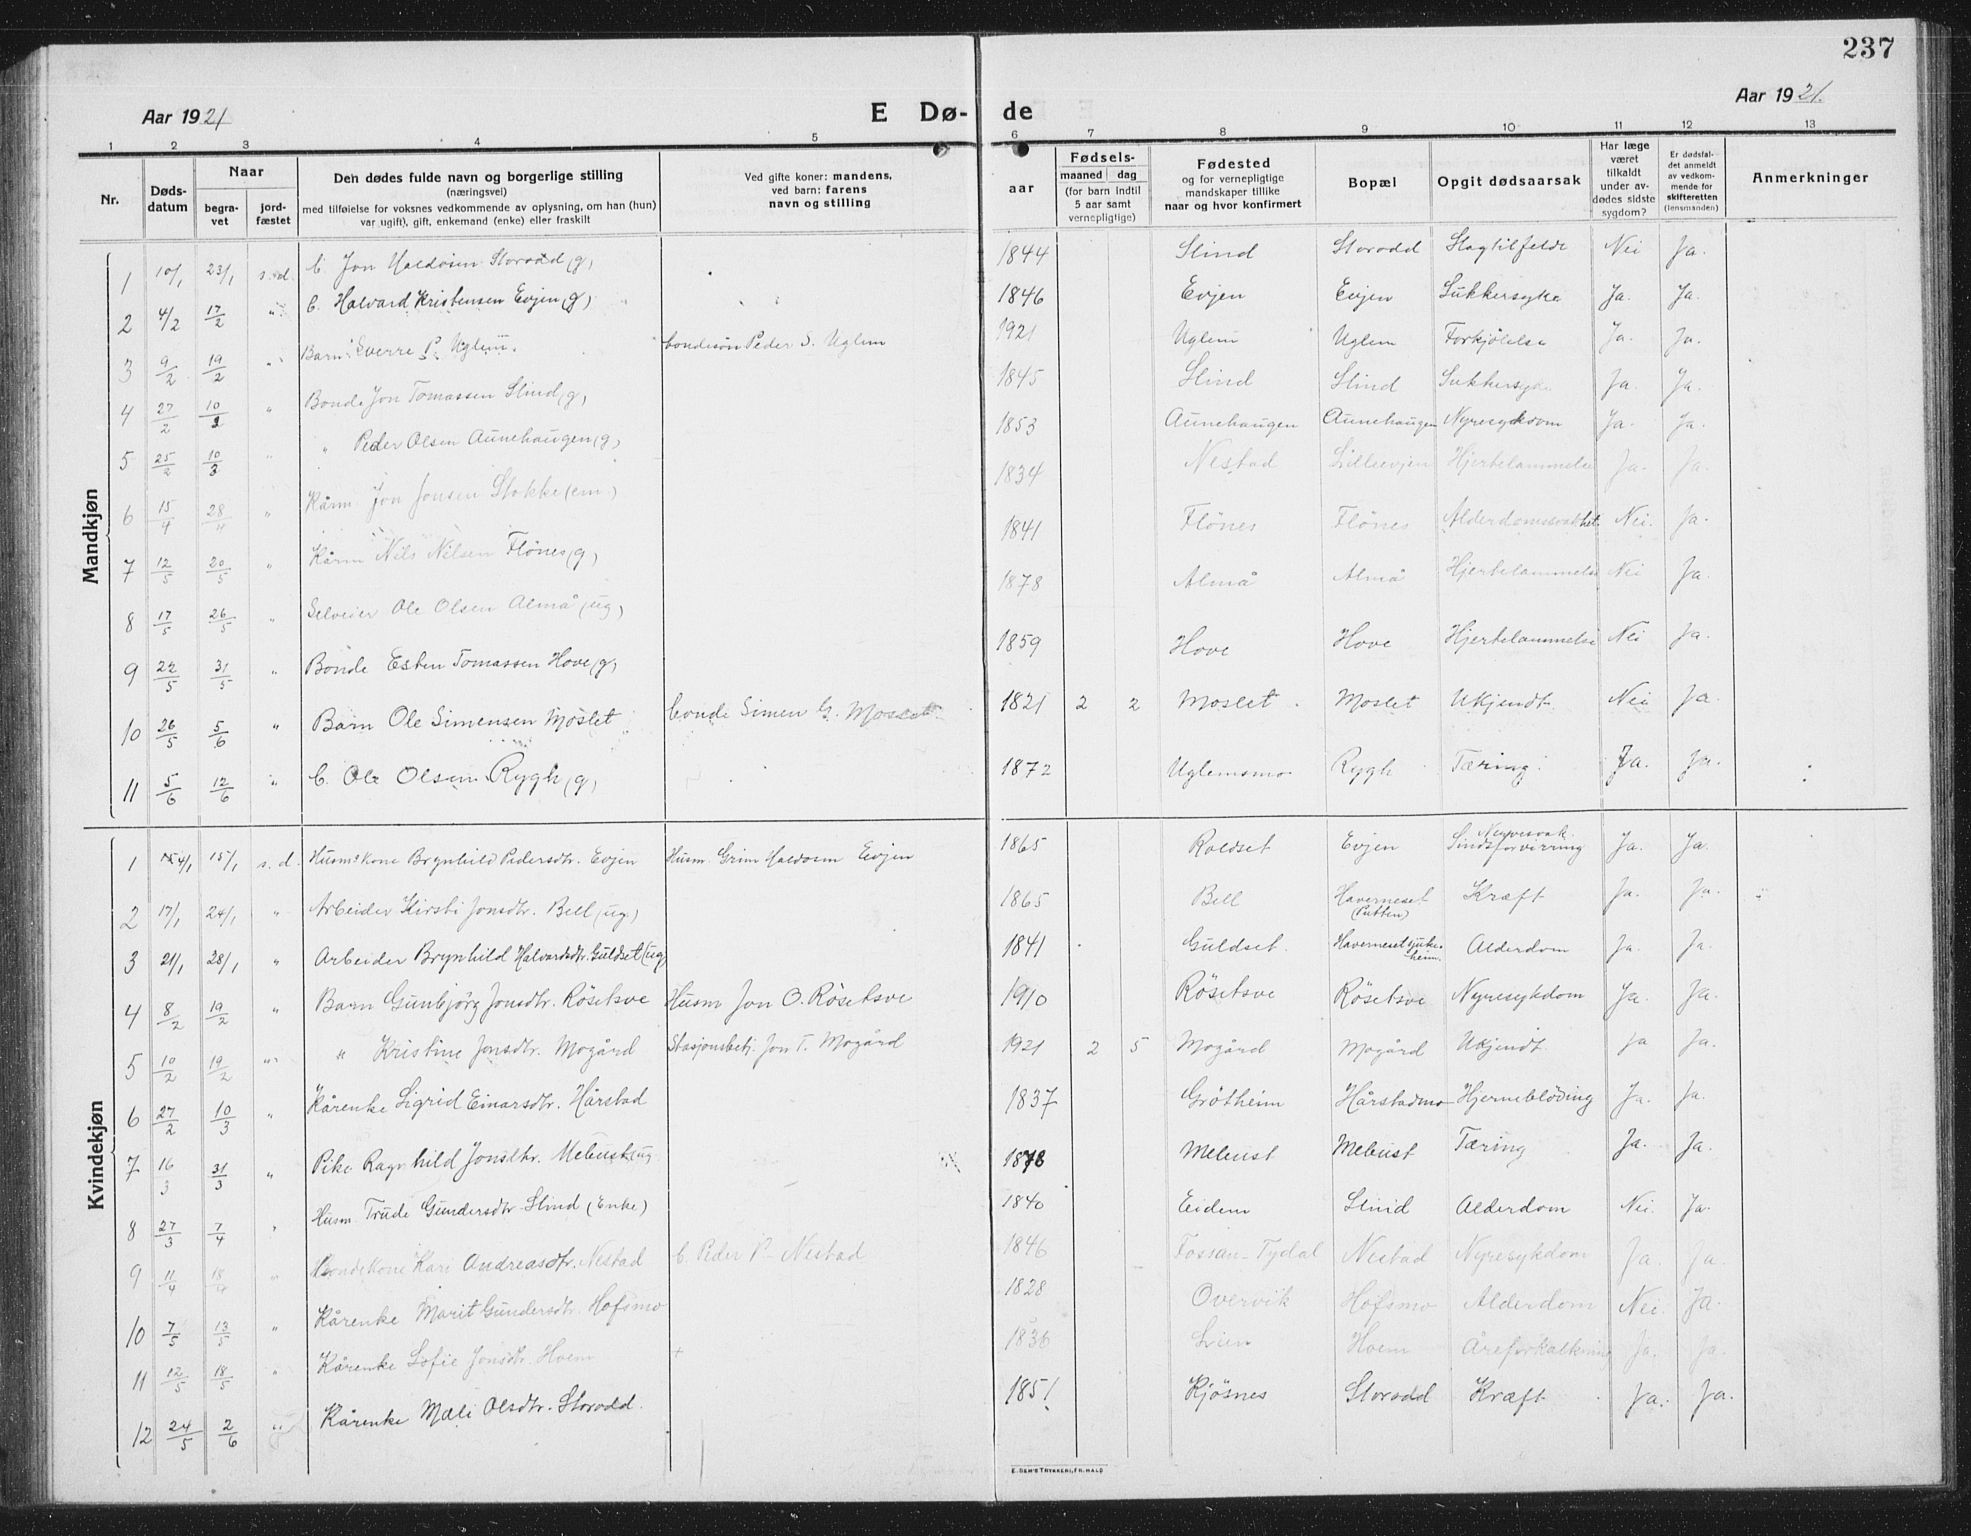 237
Aar 1921
E Dø-de
Aar 1921.
1 2 3 4 5 6 7 8 9 10 11 12 13
Nr.
Døds-datum
Naar
begra-vet
jord-fæstet
Den dødes fulde navn og borgerlige stilling
(næringsvei)
med tilføielse for voksnes vedkommende av oplysning, om han (hun)
var ug(ift), gift, enkemand (enke) eller fraskilt
Ved gifte koner: mandens,
ved barn: farens
navn og stilling
aar
Fødsels-
maaned dag
(for barn indtil
5 aar samt
vernepligtige)
Fødested
og for vernepligtige
mandskaper tillike
naar og hvor konfirmert
Bopæl
Opgit dødsaarsak
Har læge
været
tilkaldt
under av-
dødes sidste
sygdom?
Er dødsfal-
det anmeldt
av vedkom-
mende for
skifteretten
(lensmanden)
Anmerkninger
Mandkjøn
1 10/1 23/1 s.d. b. Jon Haldosen Storodd (g) 1844 Slind Storodd Slagtilfelde Nei Ja.
2 4/2 17/2 " b. Halvard Kristensen Evjen (g) 1846 Evjen Evjen Sukkersyke Ja. Ja.
3 9/2 19/2 " Barn Sverre P. Uglem. bondesøn Peder S. Uglem 1921 Uglem Uglem Forkjølelse Ja. Ja.
4 27/2 10/3 " Bonde Jon Tomassen Slind (g) 1845 Slind Slind Sukkersyke Ja. Ja.
5 25/2 10/3 " " Peder Olsen Aunehaugen (g) 1853 Aunehaugen Aunehaugen Nyresykdom Ja. Ja.
6 15/4 28/4 " Kårm. Jon Jonsen Stokke (em.) 1834 Nestad Lilleevjen Hjertelammelse Ja. Ja.
7 12/5 20/5 " Kårm Nils Nilsen Flönes (g) 1841 Flönes Flönes Alderdomssvakhet Nei. Ja.
8 17/5 26/5 " Selveier Ole Olsen Almå (ug) 1878 Almå Almå Hjertelammelse Nei Ja.
9 22/5 31/5 " Bonde Esten Tomassen Hove (g) 1859 Hove Hove Hjertelammelse Nei Ja.
10 26/5 5/6 " Barn Ole Simensen Moslet bonde Simen G. Moslet 1821 2 2 Moslet Moslet Ukjendt Nei Ja.
11 5/6 12/6 " b. Ole Olsen Rygh (g) 1872 Uglemsmo Rygh Tæring Ja. Ja.
Kvindekjøn
1 4/1 15/1 s.d. Husms kone Brynhild Pedersdtr. Evjen Husm. Grim Haldosen Evjen 1865 Roldset Evjen Nervesvak. Sindsforvirring Ja. Ja.
2 17/1 24/1 " Arbeider Kirsti Jonsdtr. Bell (ug) 1865 Bell Haverneset (Putten) Kræft Ja. Ja.
3 21/1 28/1 " Arbeider Brynhild Halvardsdtr. Guldset (ug) 1841 Guldset Haverneset sjukeheim. Alderdom Ja. Ja.
4 8/2 19/2 " Barn Gunbjörg Jonsdtr. Rösetsve Husm Jon O. Rösetsve 1910 Rösetsve Rösetsve Nyresykdom Ja. Ja.
5 10/2 19/2 " " Kristine Jonsdtr. Mogård Stasjonsbetj. Jon T. Mogård 1921 2 5 Mogård Mogård Ukjendt. Ja Ja.
6 27/2 10/3 " Kårenke Sigrid Einarsdtr. Hårstad 1837 Grötheim Hårstadmo Hjerneblöding Ja. Ja.
7 16/3 31/3 " Pike Ragnhild Jonsdtr. Mebust (ug 1878 Mebust Mebust Tæring Ja. Ja.
8 27/3 7/4 " Husm. Trude Gundersdtr Slind (Enke) 1840 Eidem Slind Alderdom Nei. Ja.
9 11/4 18/4 " Bondekone Kari Andreasdtr. Nestad b. Peder P. Nestad 1846 Fossan-Tydal Nestad Nyresykdom Ja. Ja.
10 7/5 13/5 " Kårenke Marit Gundersdtr. Hofsmo 1828 Overvik Hofsmo Alderdom Nei. Ja.
11 12/5 18/5 " Kårenke Sofie Jonsdtr. Hoem + 1836 Lien Hoem Åreforkalkning Ja. Ja.
12 24/5 2/6 " Kårenke Mali Olsdtr. Storodd. 1851 Kjösnes Storodd Kræft Ja. Ja.
E. SEM'S TRYKKERI, FR. HALD